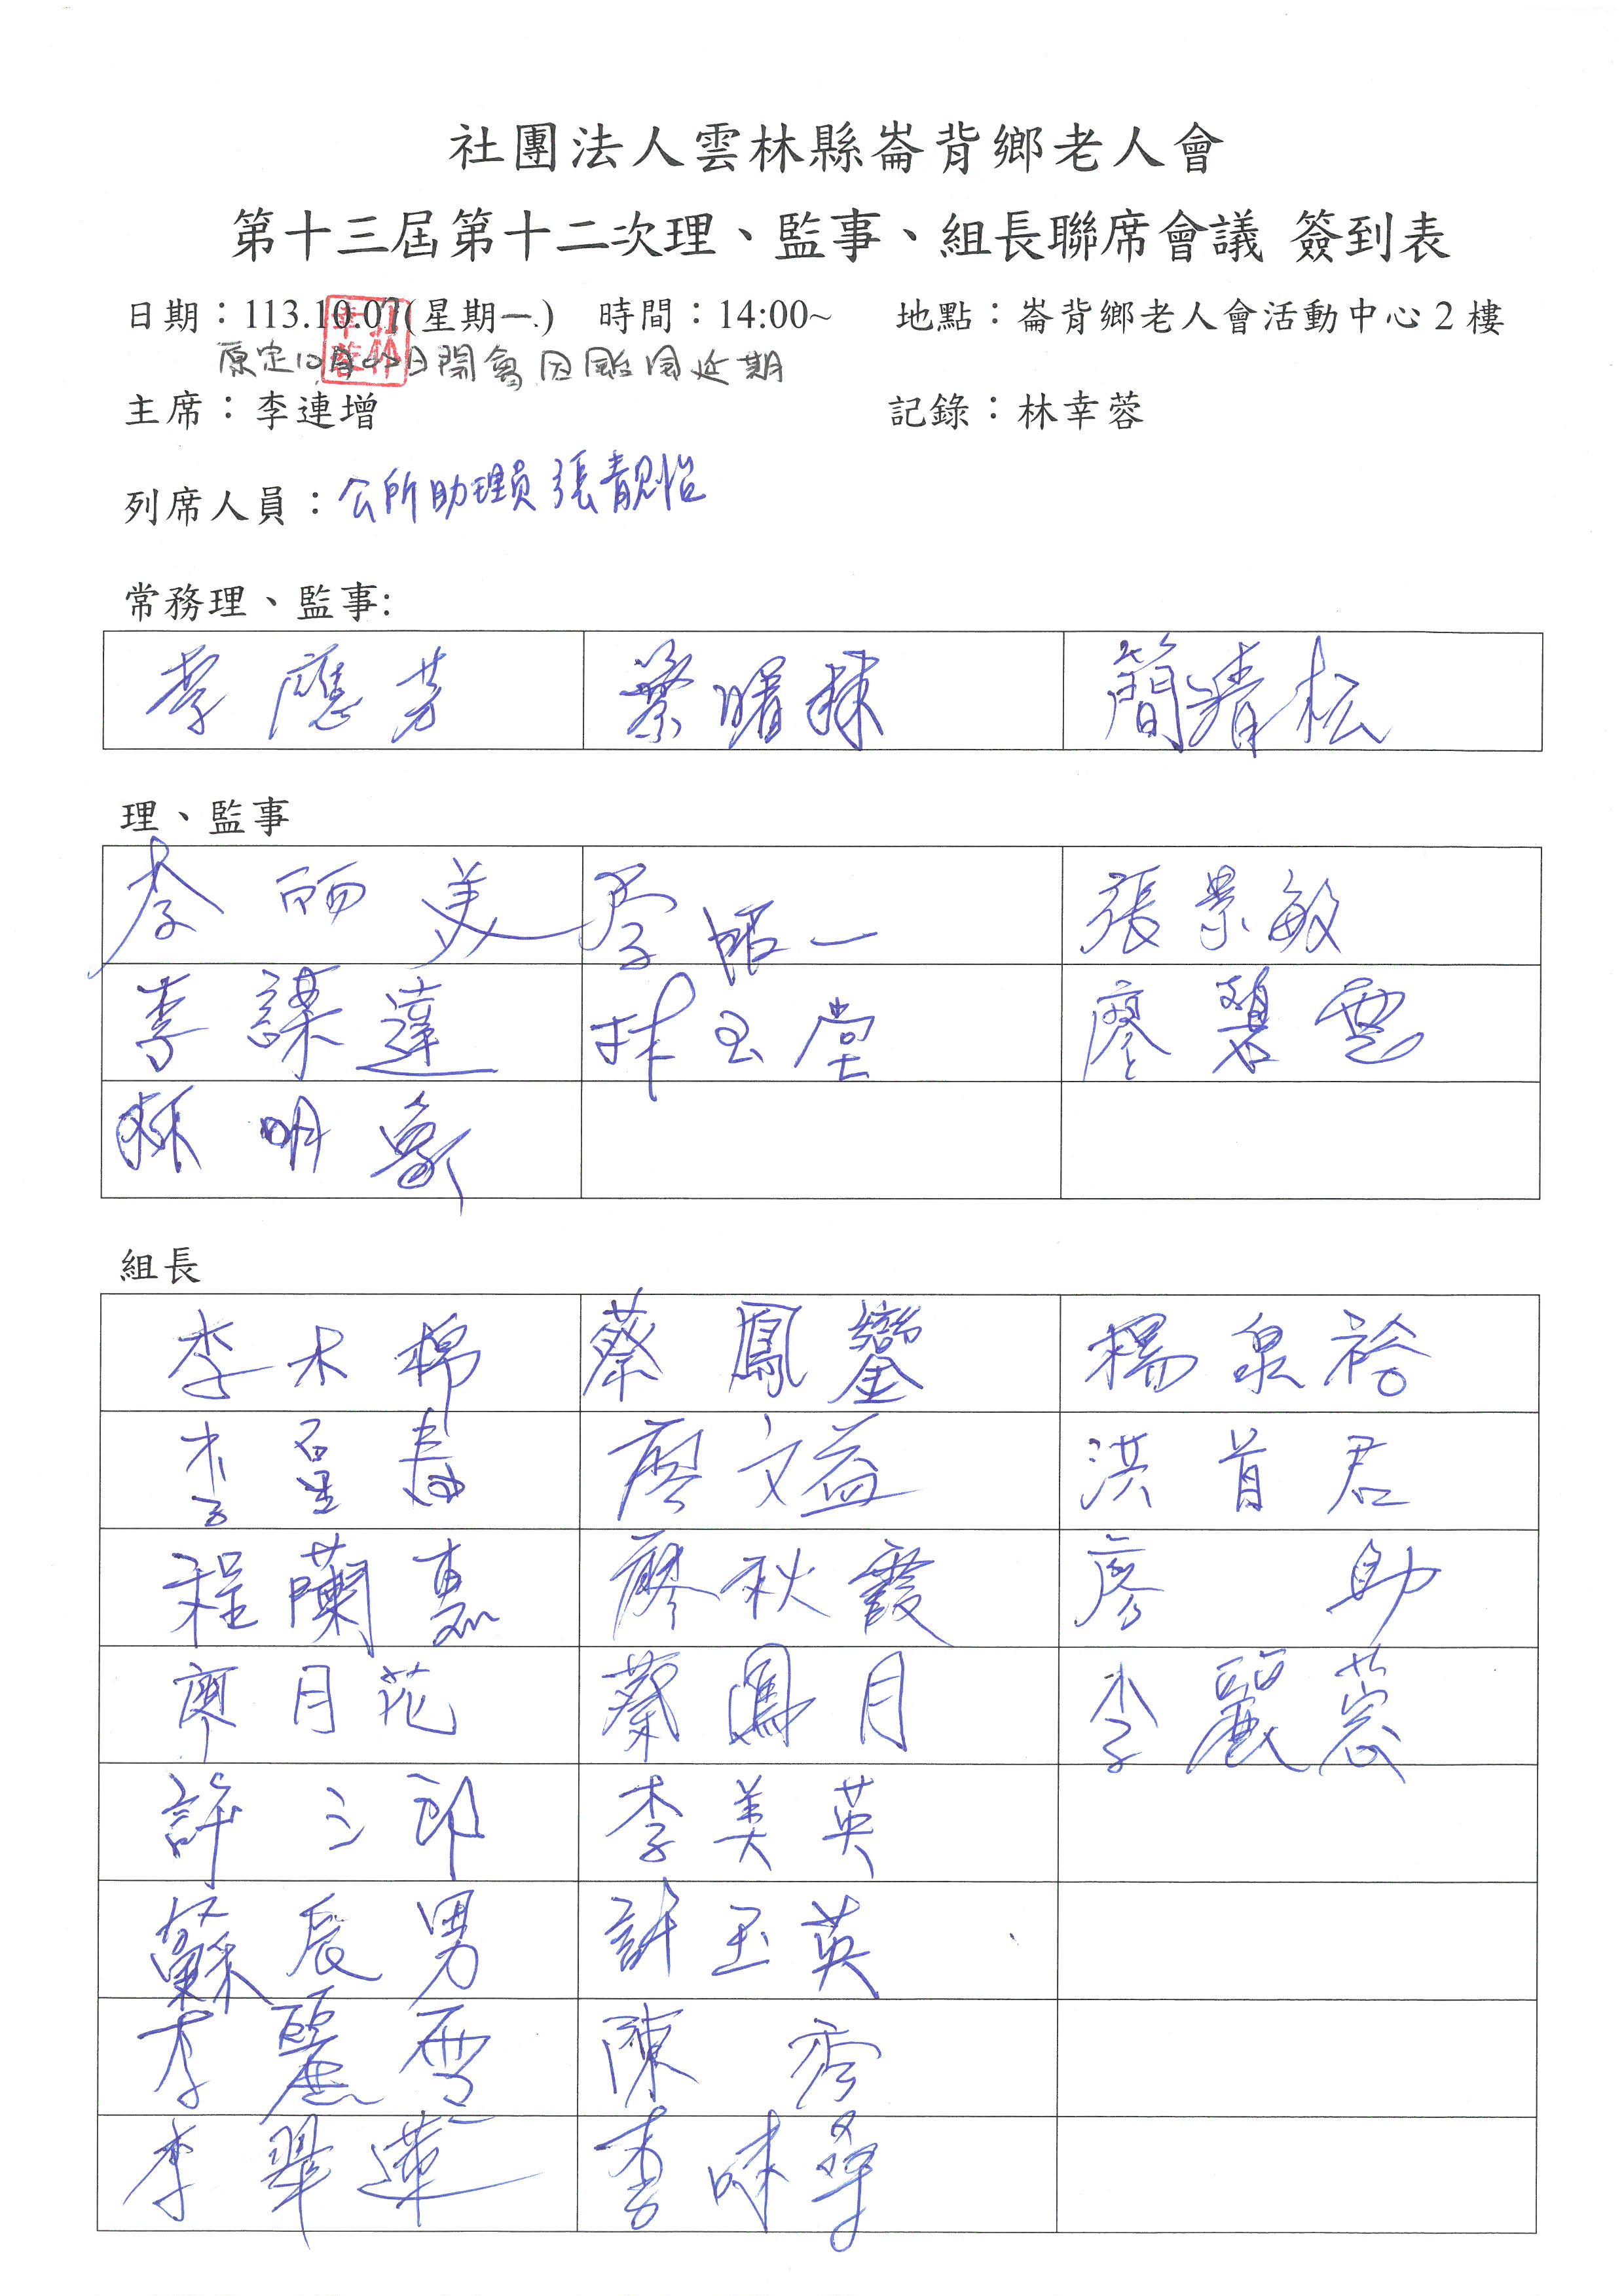 社團法人雲林縣崙背鄉老人會
第十三屆第十二次理、監事、組長聯席會議 簽到表
日期：113.10.07(星期一) 時間：14:00~ 地點：崙背鄉老人會活動中心2樓
原定10月 日開會因颱風延期
主席：李連增 記錄：林幸蓉
列席人員：公所助理員 張靚怡
常務理、監事:
李應芳 蔡曙 簡清松
理、監事
李丽美 李昭一 張景敏
李謀達 林玉堂 廖碧雲
明
組長
李木棉 蔡鳳鑾 楊泉裕
李 廖文益 洪首君
程蘭惠 廖秋霞 廖 助
廖月花 蔡鳳月 李麗
許三郎 李美英
蘇辰男 許玉英
李麗雪 陳 秀
李翠蓮 李